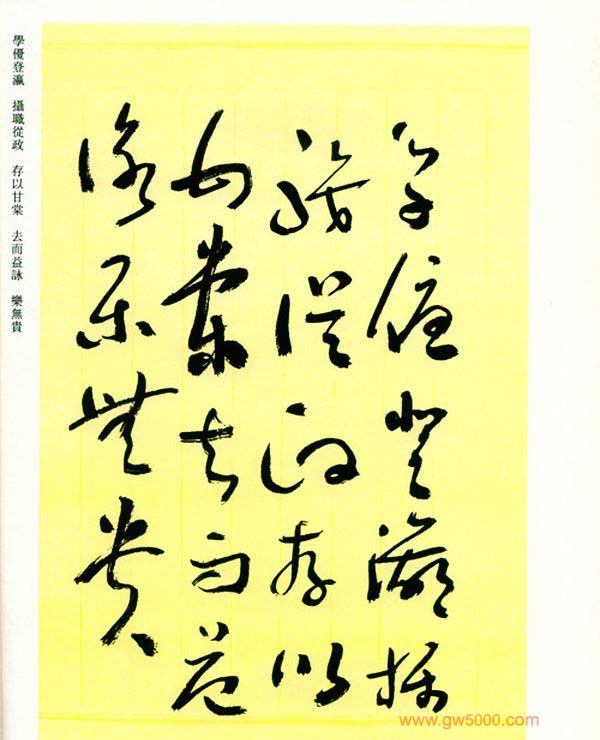 學優登瀛攝
職從政存以
甘棠去而益
詠樂無貴
學優登瀛 攝職從政 存以甘棠 去而益詠 樂無貴
www.gw5000.com